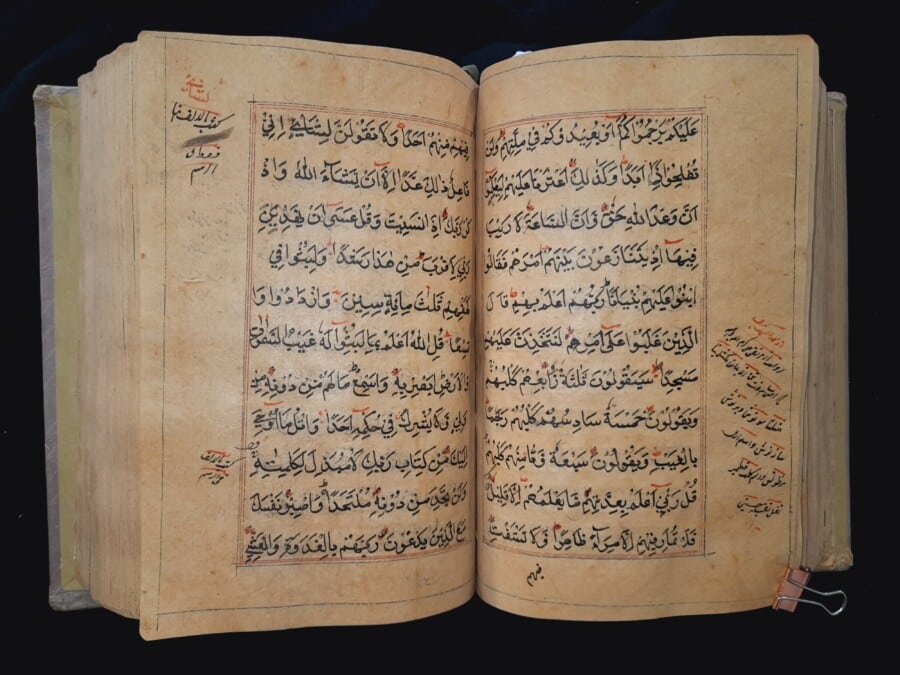 عَلَيْكُمْ يَرْجُمُوْكُمْ اَوْ يُعِيْدُوْكُمْ فِيْ مِلَّتِهِمْ وَلَنْ
تُفْلِحُوْا اِذًا اَبَدًا وَكَذٰلِكَ اَعْثَرْنَا عَلَيْهِمْ لِيَعْلَمُوْا
اَنَّ وَعْدَ اللهِ حَقٌّ وَاَنَّ السَّاعَةَ لَا رَيْبَ
فِيْهَا اِذْ يَتَنَازَعُوْنَ بَيْنَهُمْ اَمْرَهُمْ فَقَالُوا
ابْنُوْا عَلَيْهِمْ بُنْيَانًا رَبُّهُمْ اَعْلَمُ بِهِمْ قَالَ
الَّذِيْنَ غَلَبُوْا عَلٰى اَمْرِهِمْ لَنَتَّخِذَنَّ عَلَيْهِمْ
مَسْجِدًا سَيَقُوْلُوْنَ ثَلٰثَةٌ رَابِعُهُمْ كَلْبُهُمْ
وَيَقُوْلُوْنَ خَمْسَةٌ سَادِسُهُمْ كَلْبُهُمْ رَجْمًا
بِالْغَيْبِ وَيَقُوْلُوْنَ سَبْعَةٌ وَثَامِنُهُمْ كَلْبُهُمْ
قُلْ رَبِّيْ اَعْلَمُ بِعِدَّتِهِمْ مَا يَعْلَمُهُمْ اِلَّا قَلِيْلٌ
فَلَا تُمَارِ فِيْهِمْ اِلَّا مِرَاءً ظَاهِرًا وَلَا تَسْتَفْتِ
فيهم
فِيْهِمْ مِنْهُمْ اَحَدًا وَلَا تَقُوْلَنَّ لِشَايْءٍ اِنِّيْ
فَاعِلٌ ذٰلِكَ غَدًا اِلَّا اَنْ يَشَاءَ اللهُ وَاذْ
كُرْ رَبَّكَ اِذَا نَسِيْتَ وَقُلْ عَسٰى اَنْ يَهْدِيَنِ
رَبِّيْ لِاَقْرَبَ مِنْ هٰذَا رَشَدًا وَلَبِثُوْا فِيْ
كَهْفِهِمْ ثَلٰثَ مِائَةٍ سِنِيْنَ وَازْدَادُوْا
تِسْعًا قُلِ اللهُ اَعْلَمُ بِمَا لَبِثُوْا لَهُ غَيْبُ السَّمٰوٰتِ
وَالْاَرْضِ اَبْصِرْ بِهِ وَاَسْمِعْ مَا لَهُمْ مِنْ دُوْنِهِ مِنْ
وَلِيٍّ وَلَا يُشْرِكُ فِيْ حُكْمِهِ اَحَدًا وَاتْلُ مَا اُوْحِيَ
اِلَيْكَ مِنْ كِتَابِ رَبِّكَ لَا مُبَدِّلَ لِكَلِمٰتِهِ
وَلَنْ تَجِدَ مِنْ دُوْنِهِ مُلْتَحَدًا وَاصْبِرْ نَفْسَكَ
مَعَ الَّذِيْنَ يَدْعُوْنَ رَبَّهُمْ بِالْغَدٰوةِ وَالْعَشِيِّ